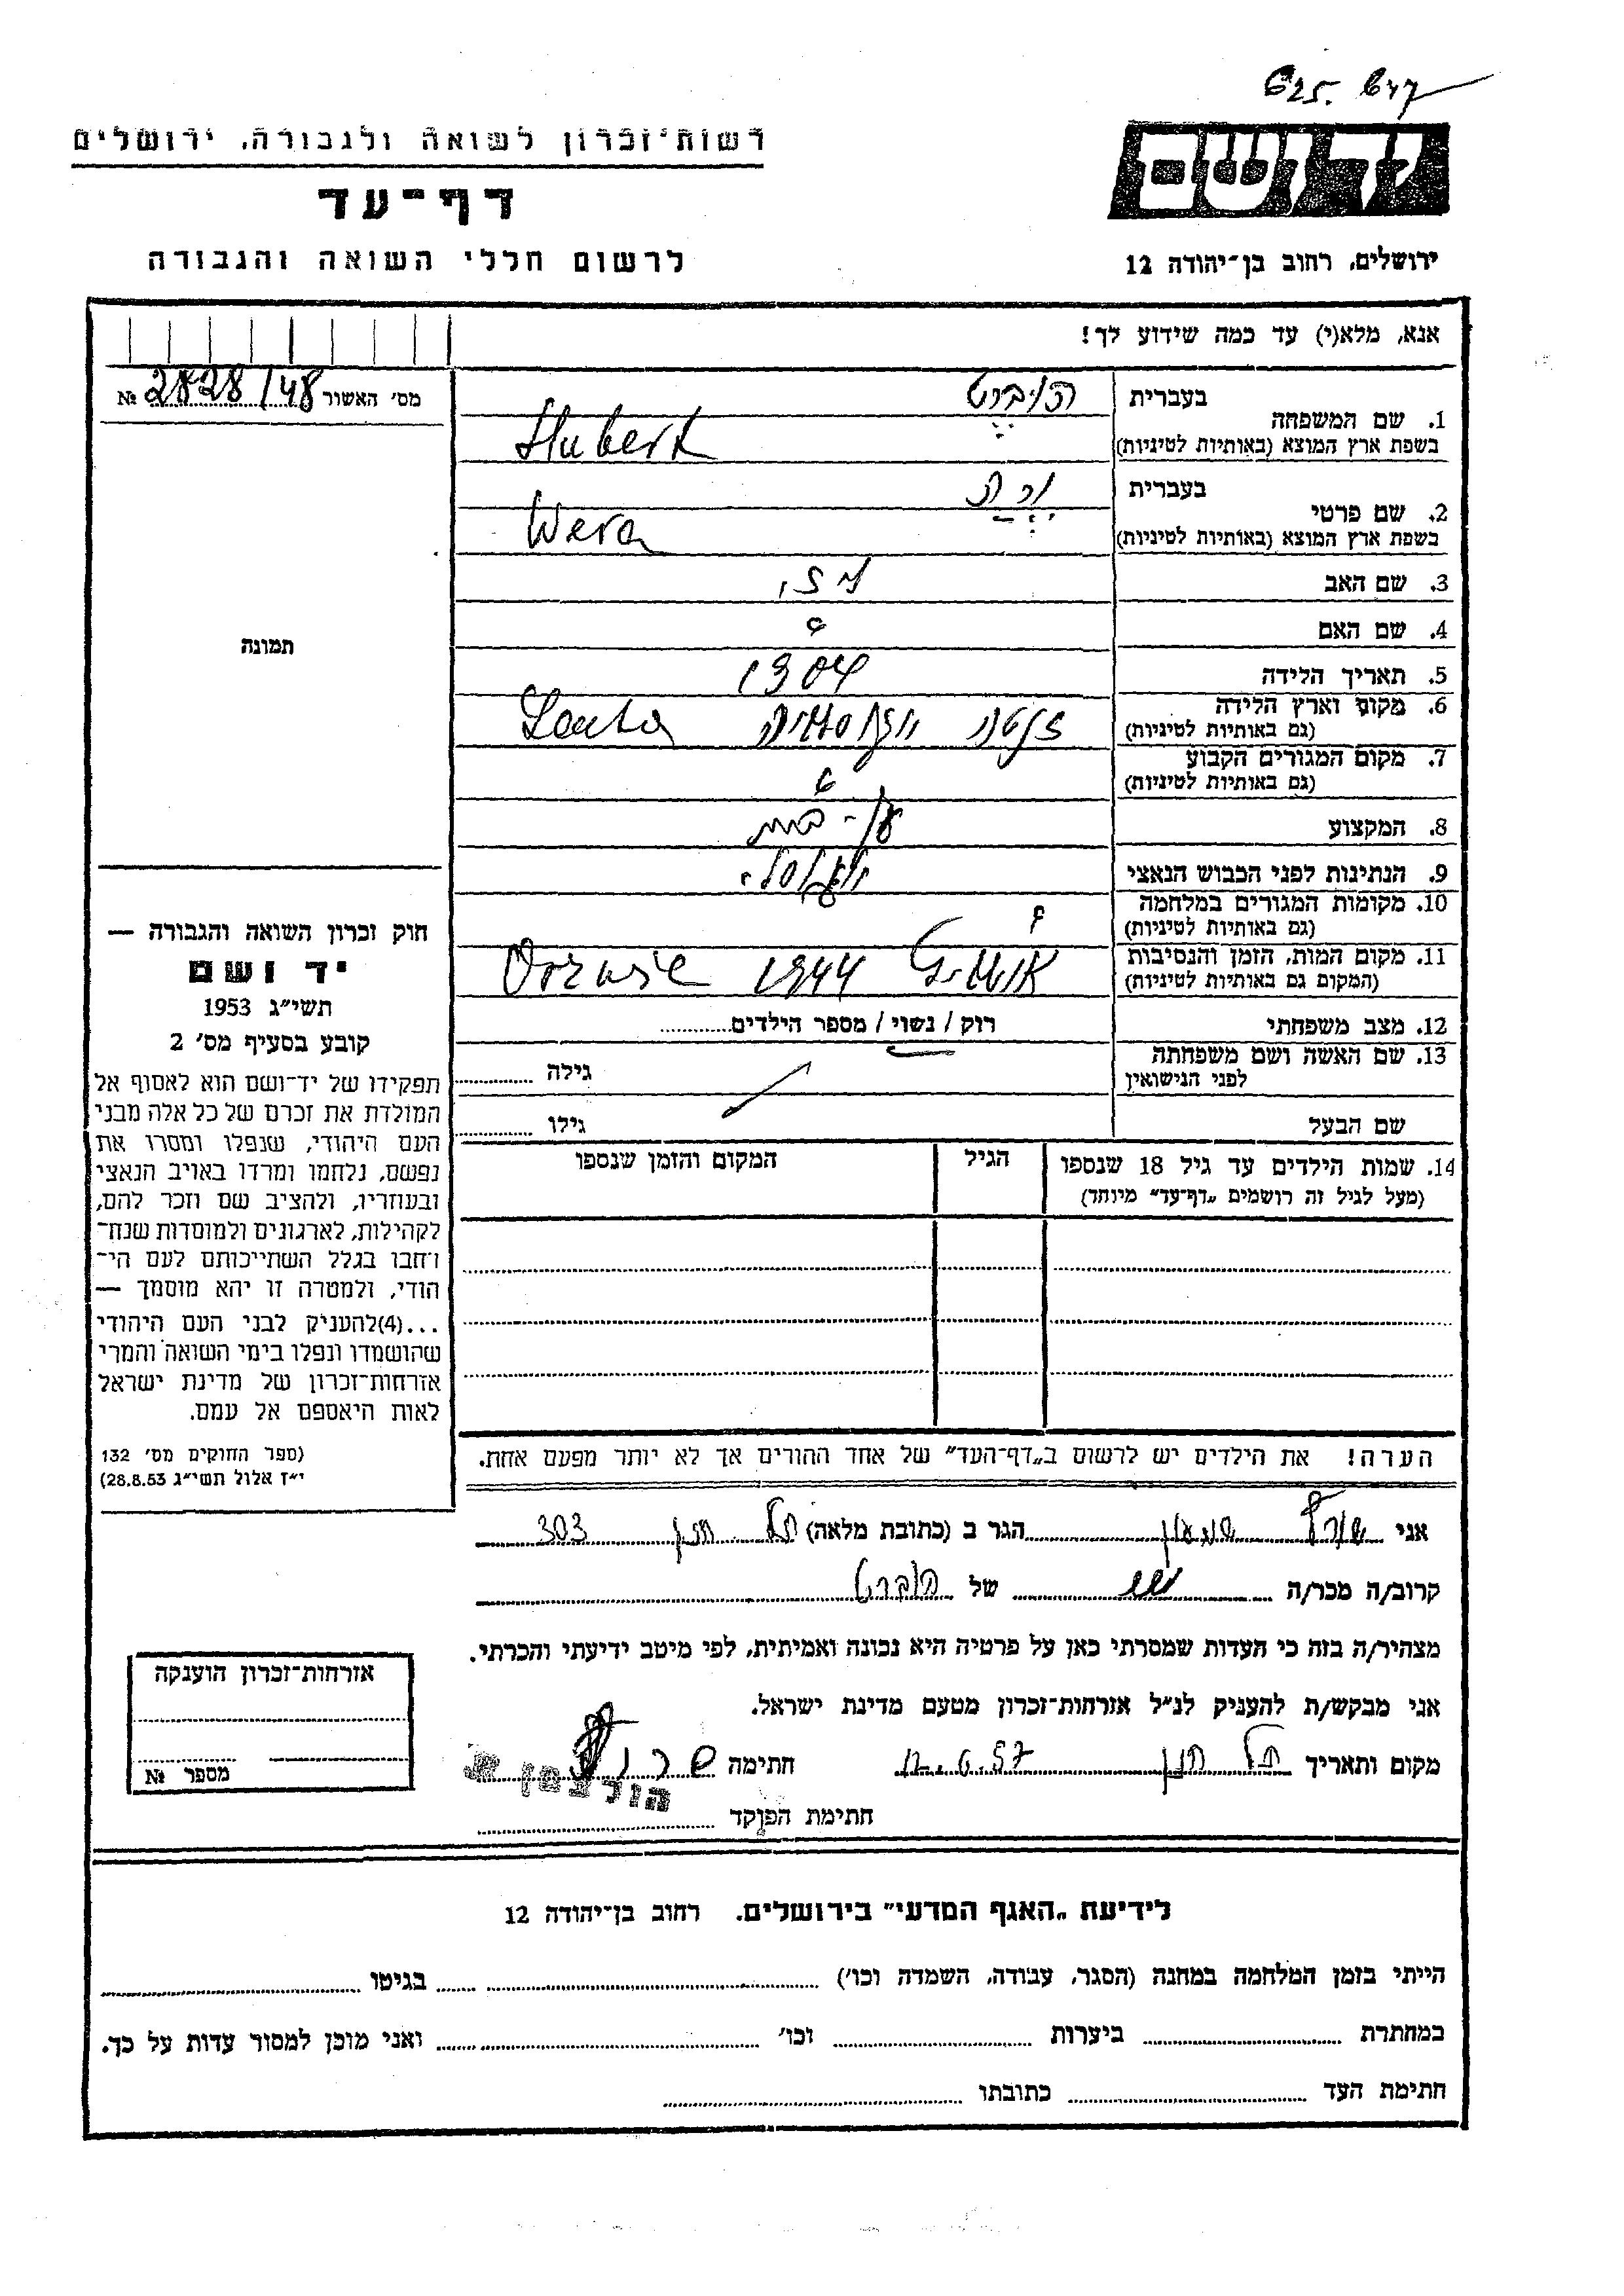 625. 647
רשות־זכרון לשואה ולגבורה, ירושלים
דף־עד
לרשום חללי השואה והגבורה
יד ושם
ירושלים, רחוב בן־יהודה 12
אנא, מלא(י) עד כמה שידוע לך!
מס׳ האשור 2828/48 №
תמונה
1. שם המשפחה
בעברית הוברט
בשפת ארץ המוצא (באותיות לטיניות) Hubert
2. שם פרטי
בעברית ורה
בשפת ארץ המוצא (באותיות לטיניות) Wera
3. שם האב
4. שם האם ?
5. תאריך הלידה 1904
6. מקום וארץ הלידה
(גם באותיות לטיניות)
7. מקום המגורים הקבוע
(גם באותיות לטיניות)
8. המקצוע
9. הנתינות לפני הכבוש הנאצי
10. מקומות המגורים במלחמה
(גם באותיות לטיניות) ?
11. מקום המות, הזמן והנסיבות
(המקום גם באותיות לטיניות) 1944
12. מצב משפחתי רוק / נשוי / מספר הילדים
13. שם האשה ושם משפחתה
לפני הנישואין גילה
שם הבעל גילו
14. שמות הילדים עד גיל 18 שנספו הגיל המקום והזמן שנספו
(מעל לגיל זה רושמים „דף־עד” מיוחד)
הערה! את הילדים יש לרשום ב„דף־העד” של אחד ההורים אך לא יותר מפעם אחת.
חוק זכרון השואה והגבורה —
יד ושם
תשי״ג 1953
קובע בסעיף מס׳ 2
תפקידו של יד־ושם הוא לאסוף אל
המולדת את זכרם של כל אלה מבני
העם היהודי, שנפלו ומסרו את
נפשם, נלחמו ומרדו באויב הנאצי
ובעוזריו, ולהציב שם וזכר להם,
לקהילות, לארגונים ולמוסדות שנח־
רבו בגלל השתייכותם לעם הי־
הודי, ולמטרה זו יהא מוסמך —
...(4)להעניק לבני העם היהודי
שהושמדו ונפלו בימי השואה והמרי
אזרחות־זכרון של מדינת ישראל
לאות היאספם אל עמם.
(ספר החוקים מס׳ 132
י״ז אלול תשי״ג 28.8.53)
אני שמעון הגר ב (כתובת מלאה) 303
קרוב/ה מכר/ה של הוברט
מצהיר/ה בזה כי העדות שמסרתי כאן על פרטיה היא נכונה ואמיתית, לפי מיטב ידיעתי והכרתי.
אני מבקש/ת להעניק לנ״ל אזרחות־זכרון מטעם מדינת ישראל.
מקום ותאריך 12.6.57 חתימה
חתימת הפוקד
אזרחות־זכרון הוענקה
מספר №
לידיעת „האגף המדעי” בירושלים. רחוב בן־יהודה 12
הייתי בזמן המלחמה במחנה (הסגר, עבודה, השמדה וכו׳) בגיטו
במחתרת ביערות וכו׳ ואני מוכן למסור עדות על כך.
חתימת העד כתובתו